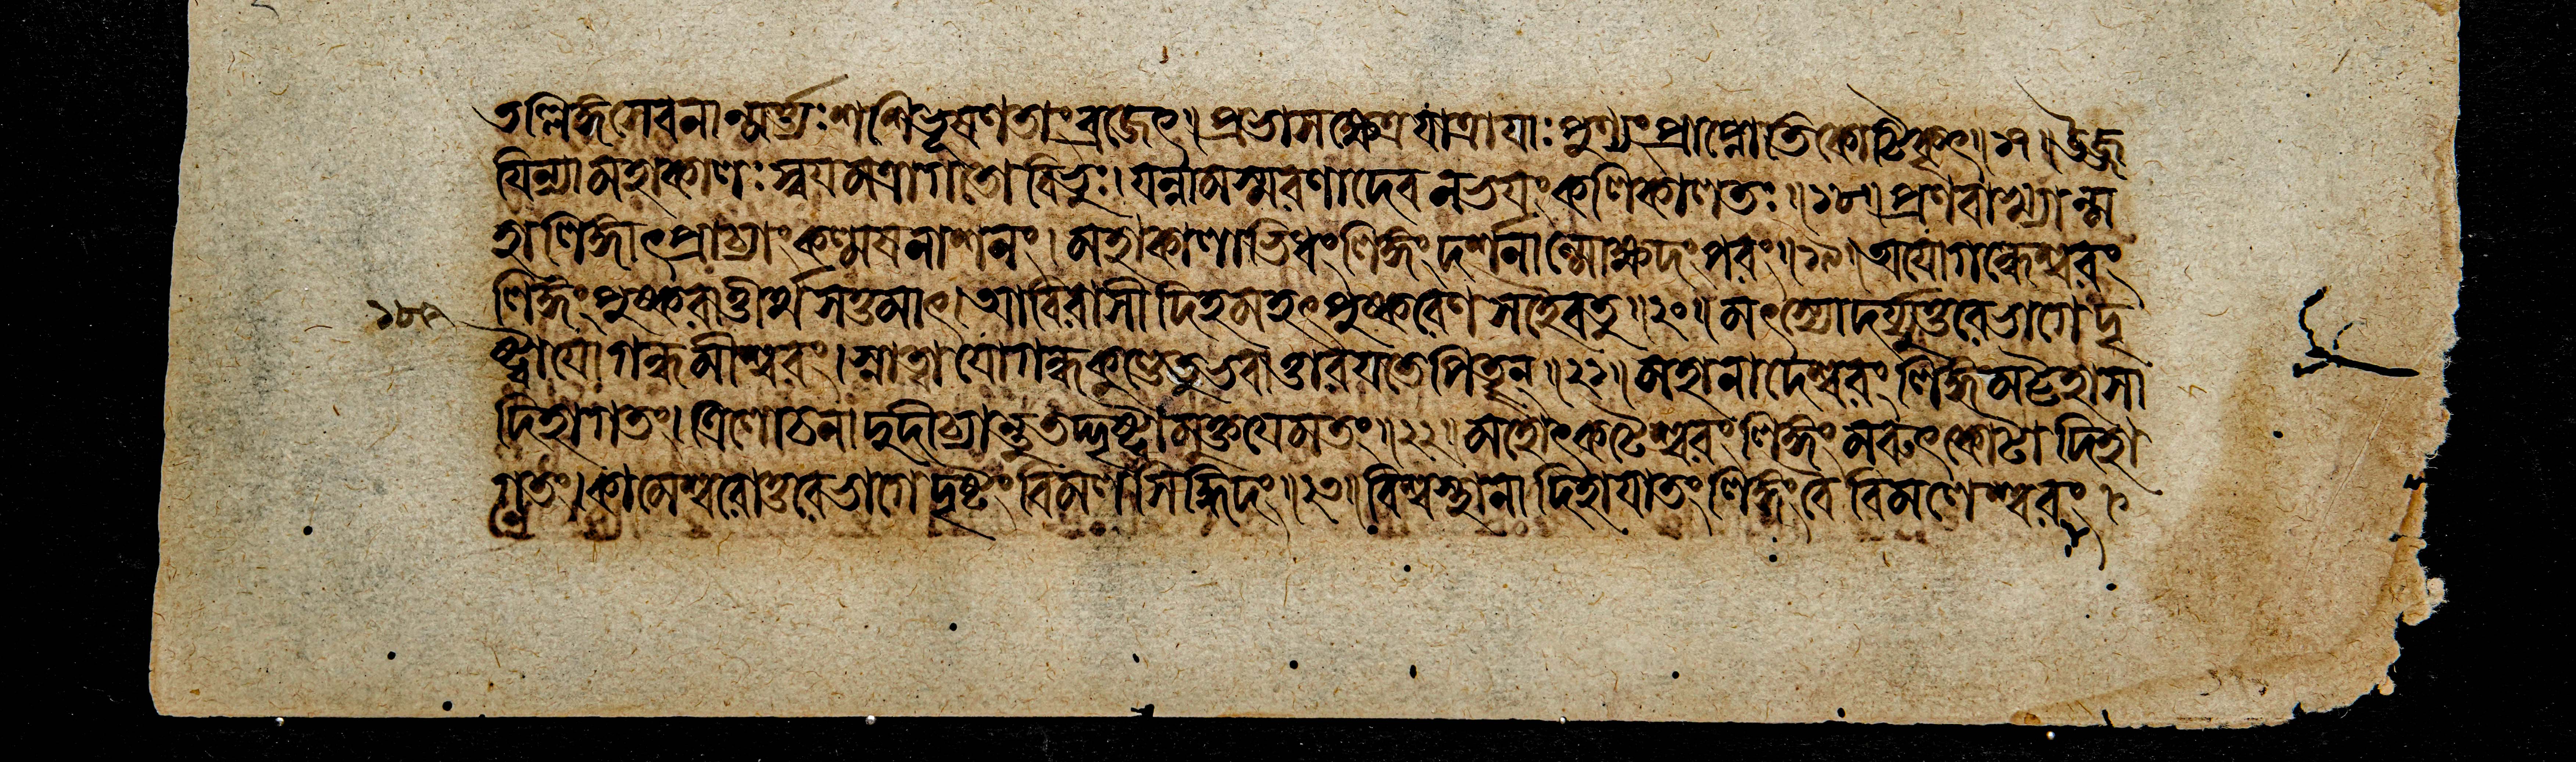 তল্লিঙ্গসেবনান্মর্ত্যঃশশিভূষণতাংব্রজেৎ॥প্রভাসক্ষেত্রযাত্রাযাঃপুণ্যংপ্রাপ্নোতিকোটিকৃৎ॥১৭॥উজ্জ
যিন্যামহাকালঃস্বযমত্রাগতোবিভুঃ।যন্নামস্মরণাদেবনভযংকলিকালতঃ॥১৮॥প্রণবাখ্যান্ম
হালিঙ্গাৎপ্রাচ্যাংকল্মষনাশনং।মহাকালাভিধংলিঙ্গংদর্শনান্মোক্ষদংপরং॥১৯॥অযোগন্ধেশ্বরং
১৮৫ লিঙ্গংপুষ্করাত্তীর্থসত্তমাৎ।আবিরাসীদিহমহৎপুষ্করেণসহৈবতু॥২০॥মৎস্যোদর্য্যুত্তরেভাগেদৃ
ষ্ট্বাযোগন্ধমীশ্বরং।স্নাত্বাযোগন্ধকুণ্ডেতুভবাত্তারযতেপিতৄন্॥২১॥মহানাদেশ্বরংলিঙ্গমট্টহাসা
দিহাগতং।ত্রিলোচনাদুদীচ্যান্তুতদ্দৃষ্ট্বামুক্তযেমতং॥২২॥মহোৎকটেশ্বরংলিঙ্গংমরুৎকোটাদিহা
গতং।কামেশ্বরোত্তরেভাগেদৃষ্টংবিমলসিদ্ধিদং॥২৩॥বিশ্বস্থানাদিহাযাতংলিঙ্গংবৈবিমলেশ্বরং।